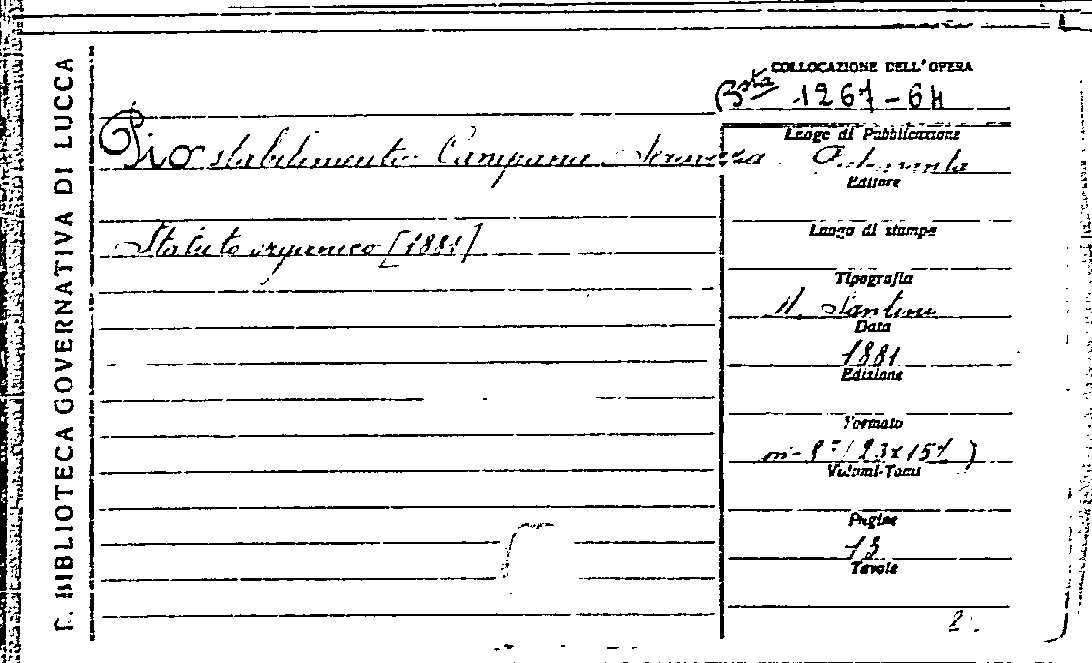 BIBLIOTECA GOVERNATIVA DI LUCCA
COLLOCAZIONE DELL'OPERA
Bsta 1267-64
Pio stabilimento Campana Seravezza
Statuto organico [1881]
Luogo di Pubblicazione
Pietrasanta
Editore
Luogo di stampa
Tipografia
Santini
Data
1881
Edizione
Formato
in-8° (23x15½)
Volumi-Tomi
Pagine
13
Tavole
2.